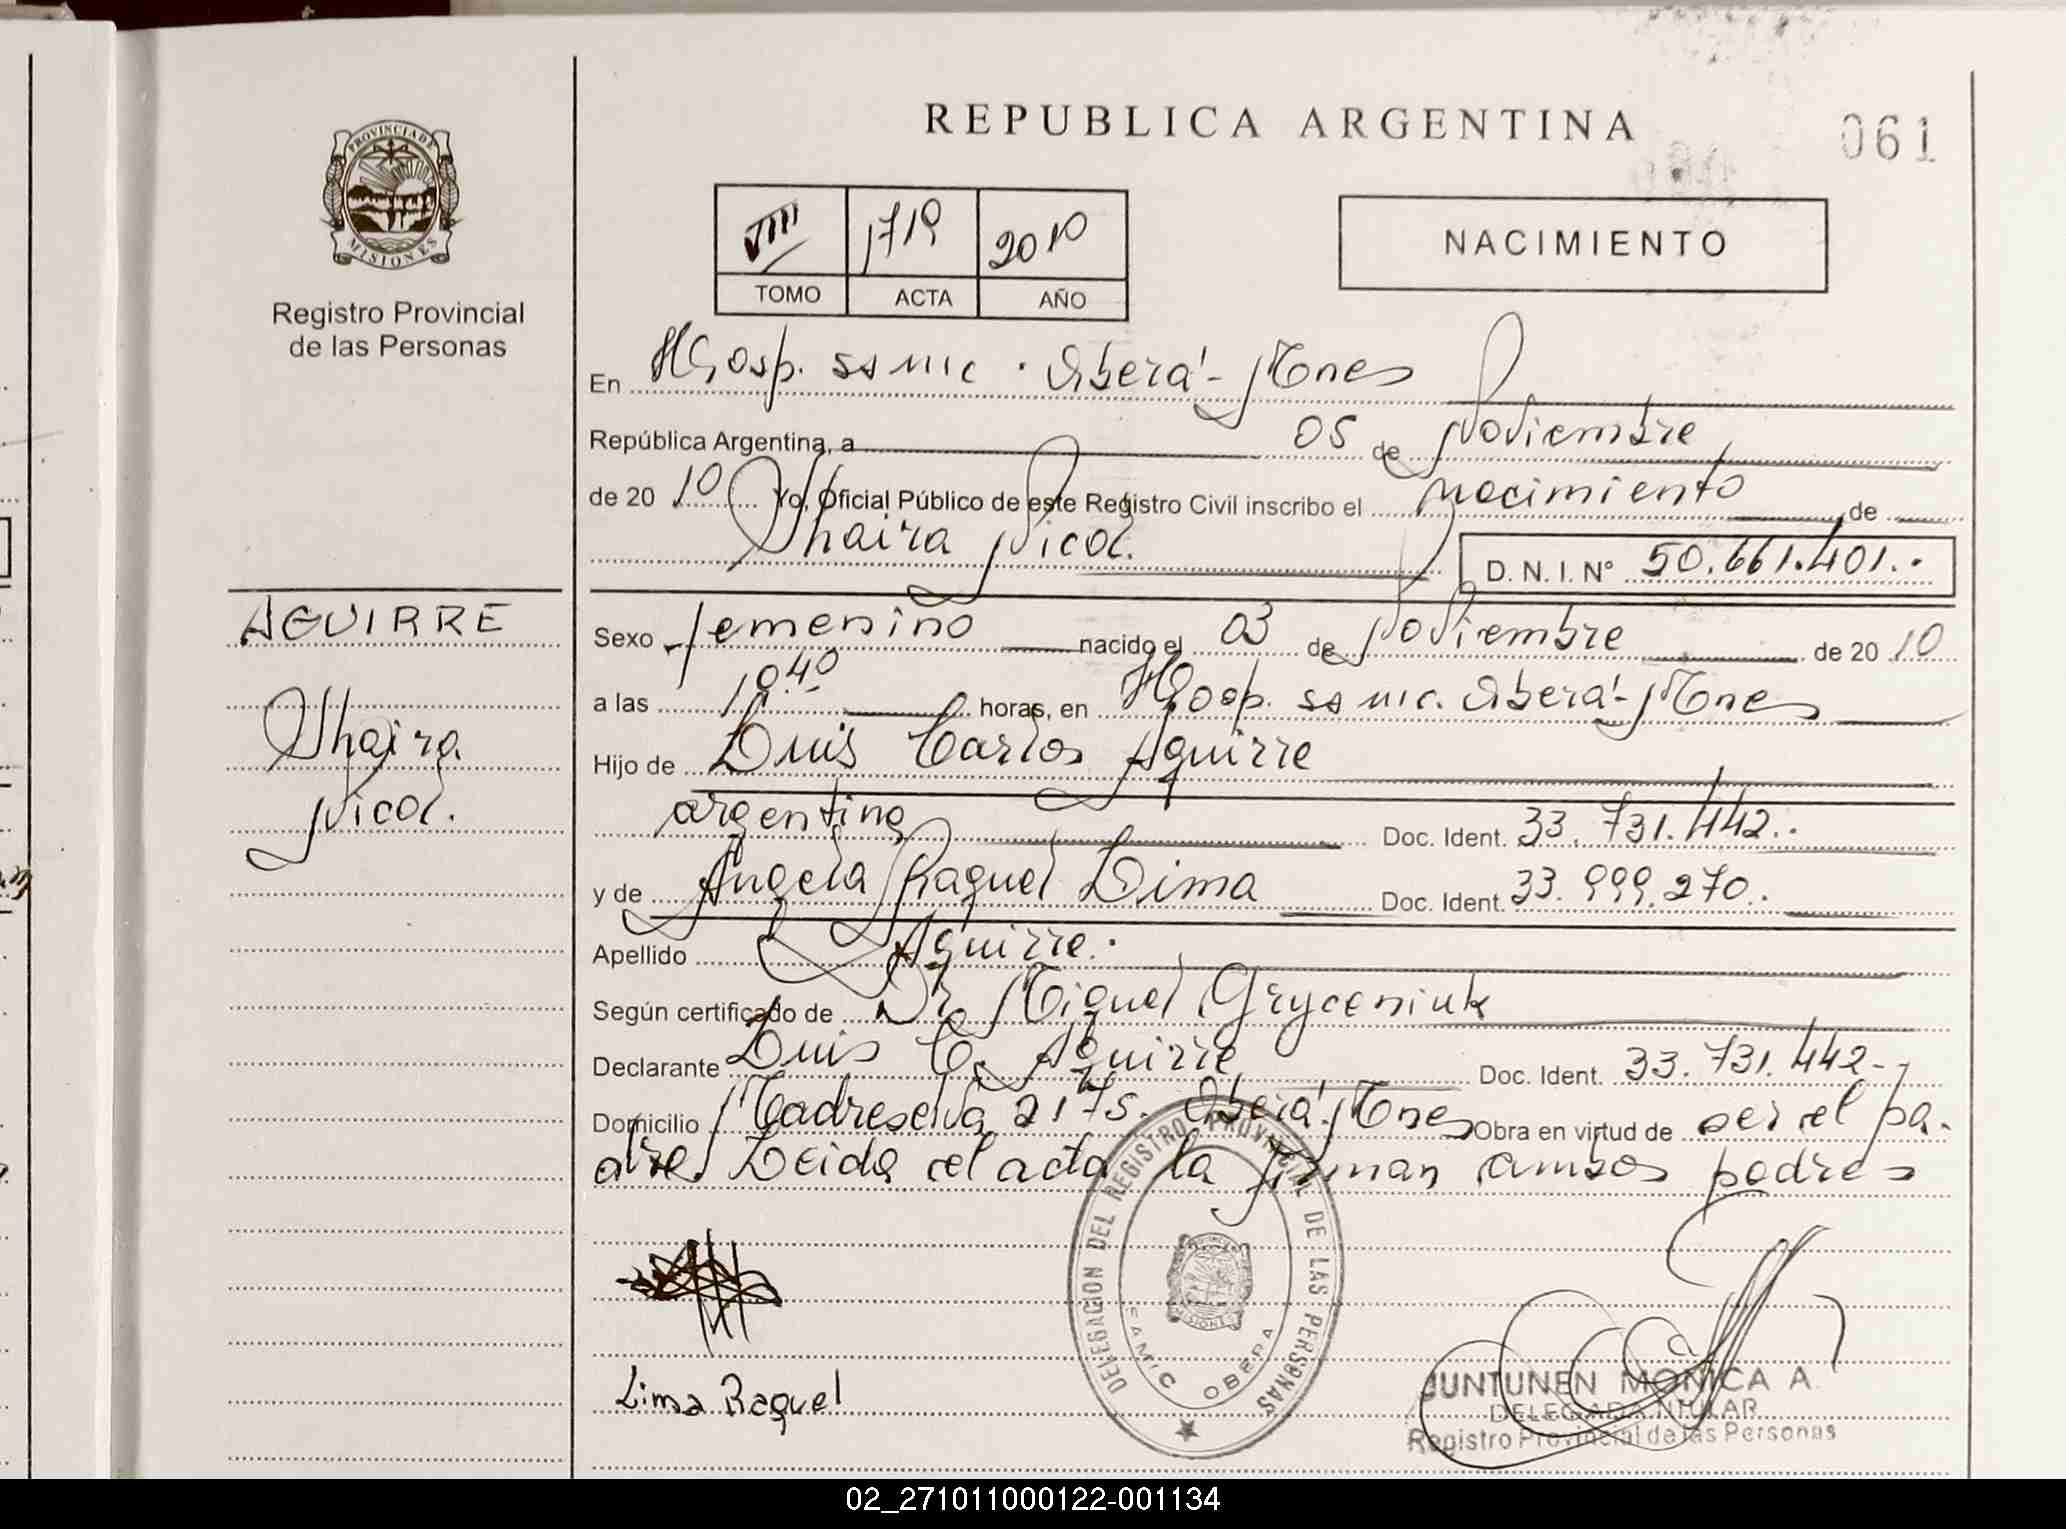 REPUBLICA ARGENTINA
061
PROVINCIA DE
MISIONES
Registro Provincial
de las Personas
VIII 1719 2010
TOMO ACTA AÑO
NACIMIENTO
En Hosp. samic. Oberá - Mnes
República Argentina, a 05 de Noviembre
de 20 10 Yo, Oficial Público de este Registro Civil inscribo el nacimiento de
Shaira Nicol.
D. N. I. Nº 50.661.401.
AGUIRRE
Shaira
Nicol.
Sexo femenino nacido el 03 de Noviembre de 20 10
a las 10.40 horas, en Hosp. samic. Oberá - Mnes
Hijo de Luis Carlos Aguirre
argentino Doc. Ident. 33.731.442.
y de Angela Raquel Lima Doc. Ident. 33.999.270.
Apellido Aguirre.
Según certificado de Dr. Miguel Gryceniuk
Declarante Luis C. Aguirre Doc. Ident. 33.731.442-
Domicilio Madreselva 2175. Oberá. Mnes Obra en virtud de ser el pa-
dre. Leida el acta la firman ambos padres
DELEGACION DEL REGISTRO PROVINCIAL DE LAS PERSONAS
OBERA
Lima Raquel
JUNTUNEN MONICA A
DELEGADA TITULAR
Registro Provincial de las Personas
02_271011000122-001134